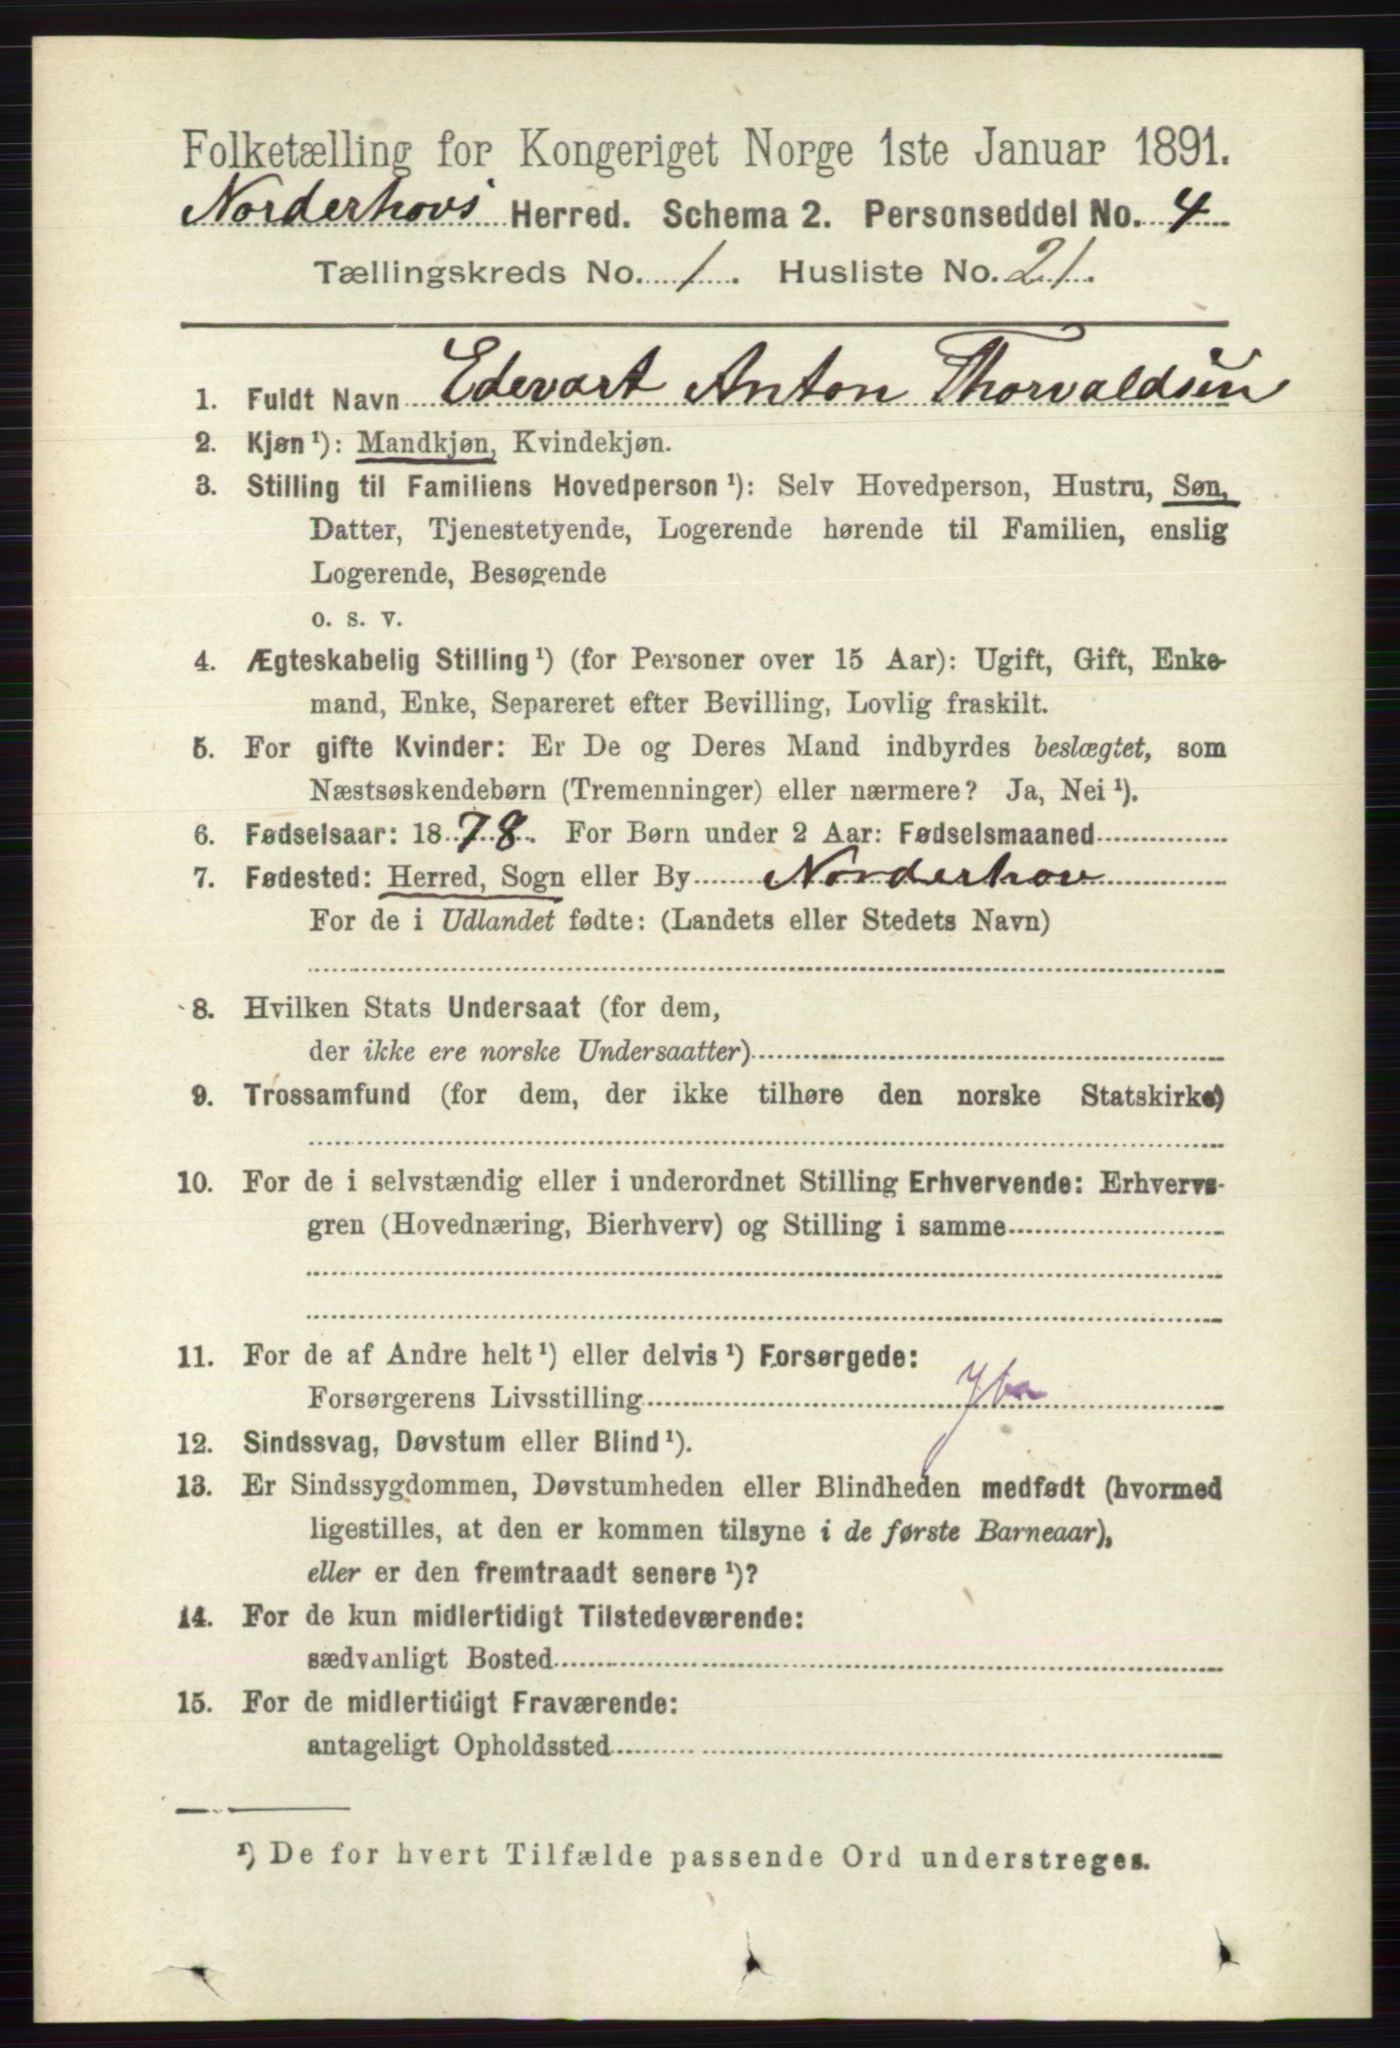 Folketælling for Kongeriget Norge 1ste Januar 1891.
Norderhovs Herred. Schema 2. Personseddel No. 4
Tællingskreds No. 1. Husliste No. 21.
1. Fuldt Navn Edevart Anton Thorvaldsen
2. Kjøn ¹): Mandkjøn, Kvindekjøn.
3. Stilling til Familiens Hovedperson ¹): Selv Hovedperson, Hustru, Søn,
Datter, Tjenestetyende, Logerende hørende til Familien, enslig
Logerende, Besøgende
o. s. v.
4. Ægteskabelig Stilling ¹) (for Personer over 15 Aar): Ugift, Gift, Enke-
mand, Enke, Separeret efter Bevilling, Lovlig fraskilt.
5. For gifte Kvinder: Er De og Deres Mand indbyrdes beslægtet, som
Næstsøskendebørn (Tremenninger) eller nærmere? Ja, Nei ¹).
6. Fødselsaar: 1878. For Børn under 2 Aar: Fødselsmaaned
7. Fødested: Herred, Sogn eller By Norderhov
For de i Udlandet fødte: (Landets eller Stedets Navn)
8. Hvilken Stats Undersaat (for dem,
der ikke ere norske Undersaatter)
9. Trossamfund (for dem, der ikke tilhøre den norske Statskirke)
10. For de i selvstændig eller i underordnet Stilling Erhvervende: Erhvervs-
gren (Hovednæring, Bierhverv) og Stilling i samme
11. For de af Andre helt ¹) eller delvis ¹) Forsørgede:
Forsørgerens Livsstilling
12. Sindssvag, Døvstum eller Blind ¹).
13. Er Sindssygdommen, Døvstumheden eller Blindheden medfødt (hvormed
ligestilles, at den er kommen tilsyne i de første Barneaar),
eller er den fremtraadt senere ¹)?
14. For de kun midlertidigt Tilstedeværende:
sædvanligt Bosted
15. For de midlertidigt Fraværende:
antageligt Opholdssted
¹) De for hvert Tilfælde passende Ord understreges.